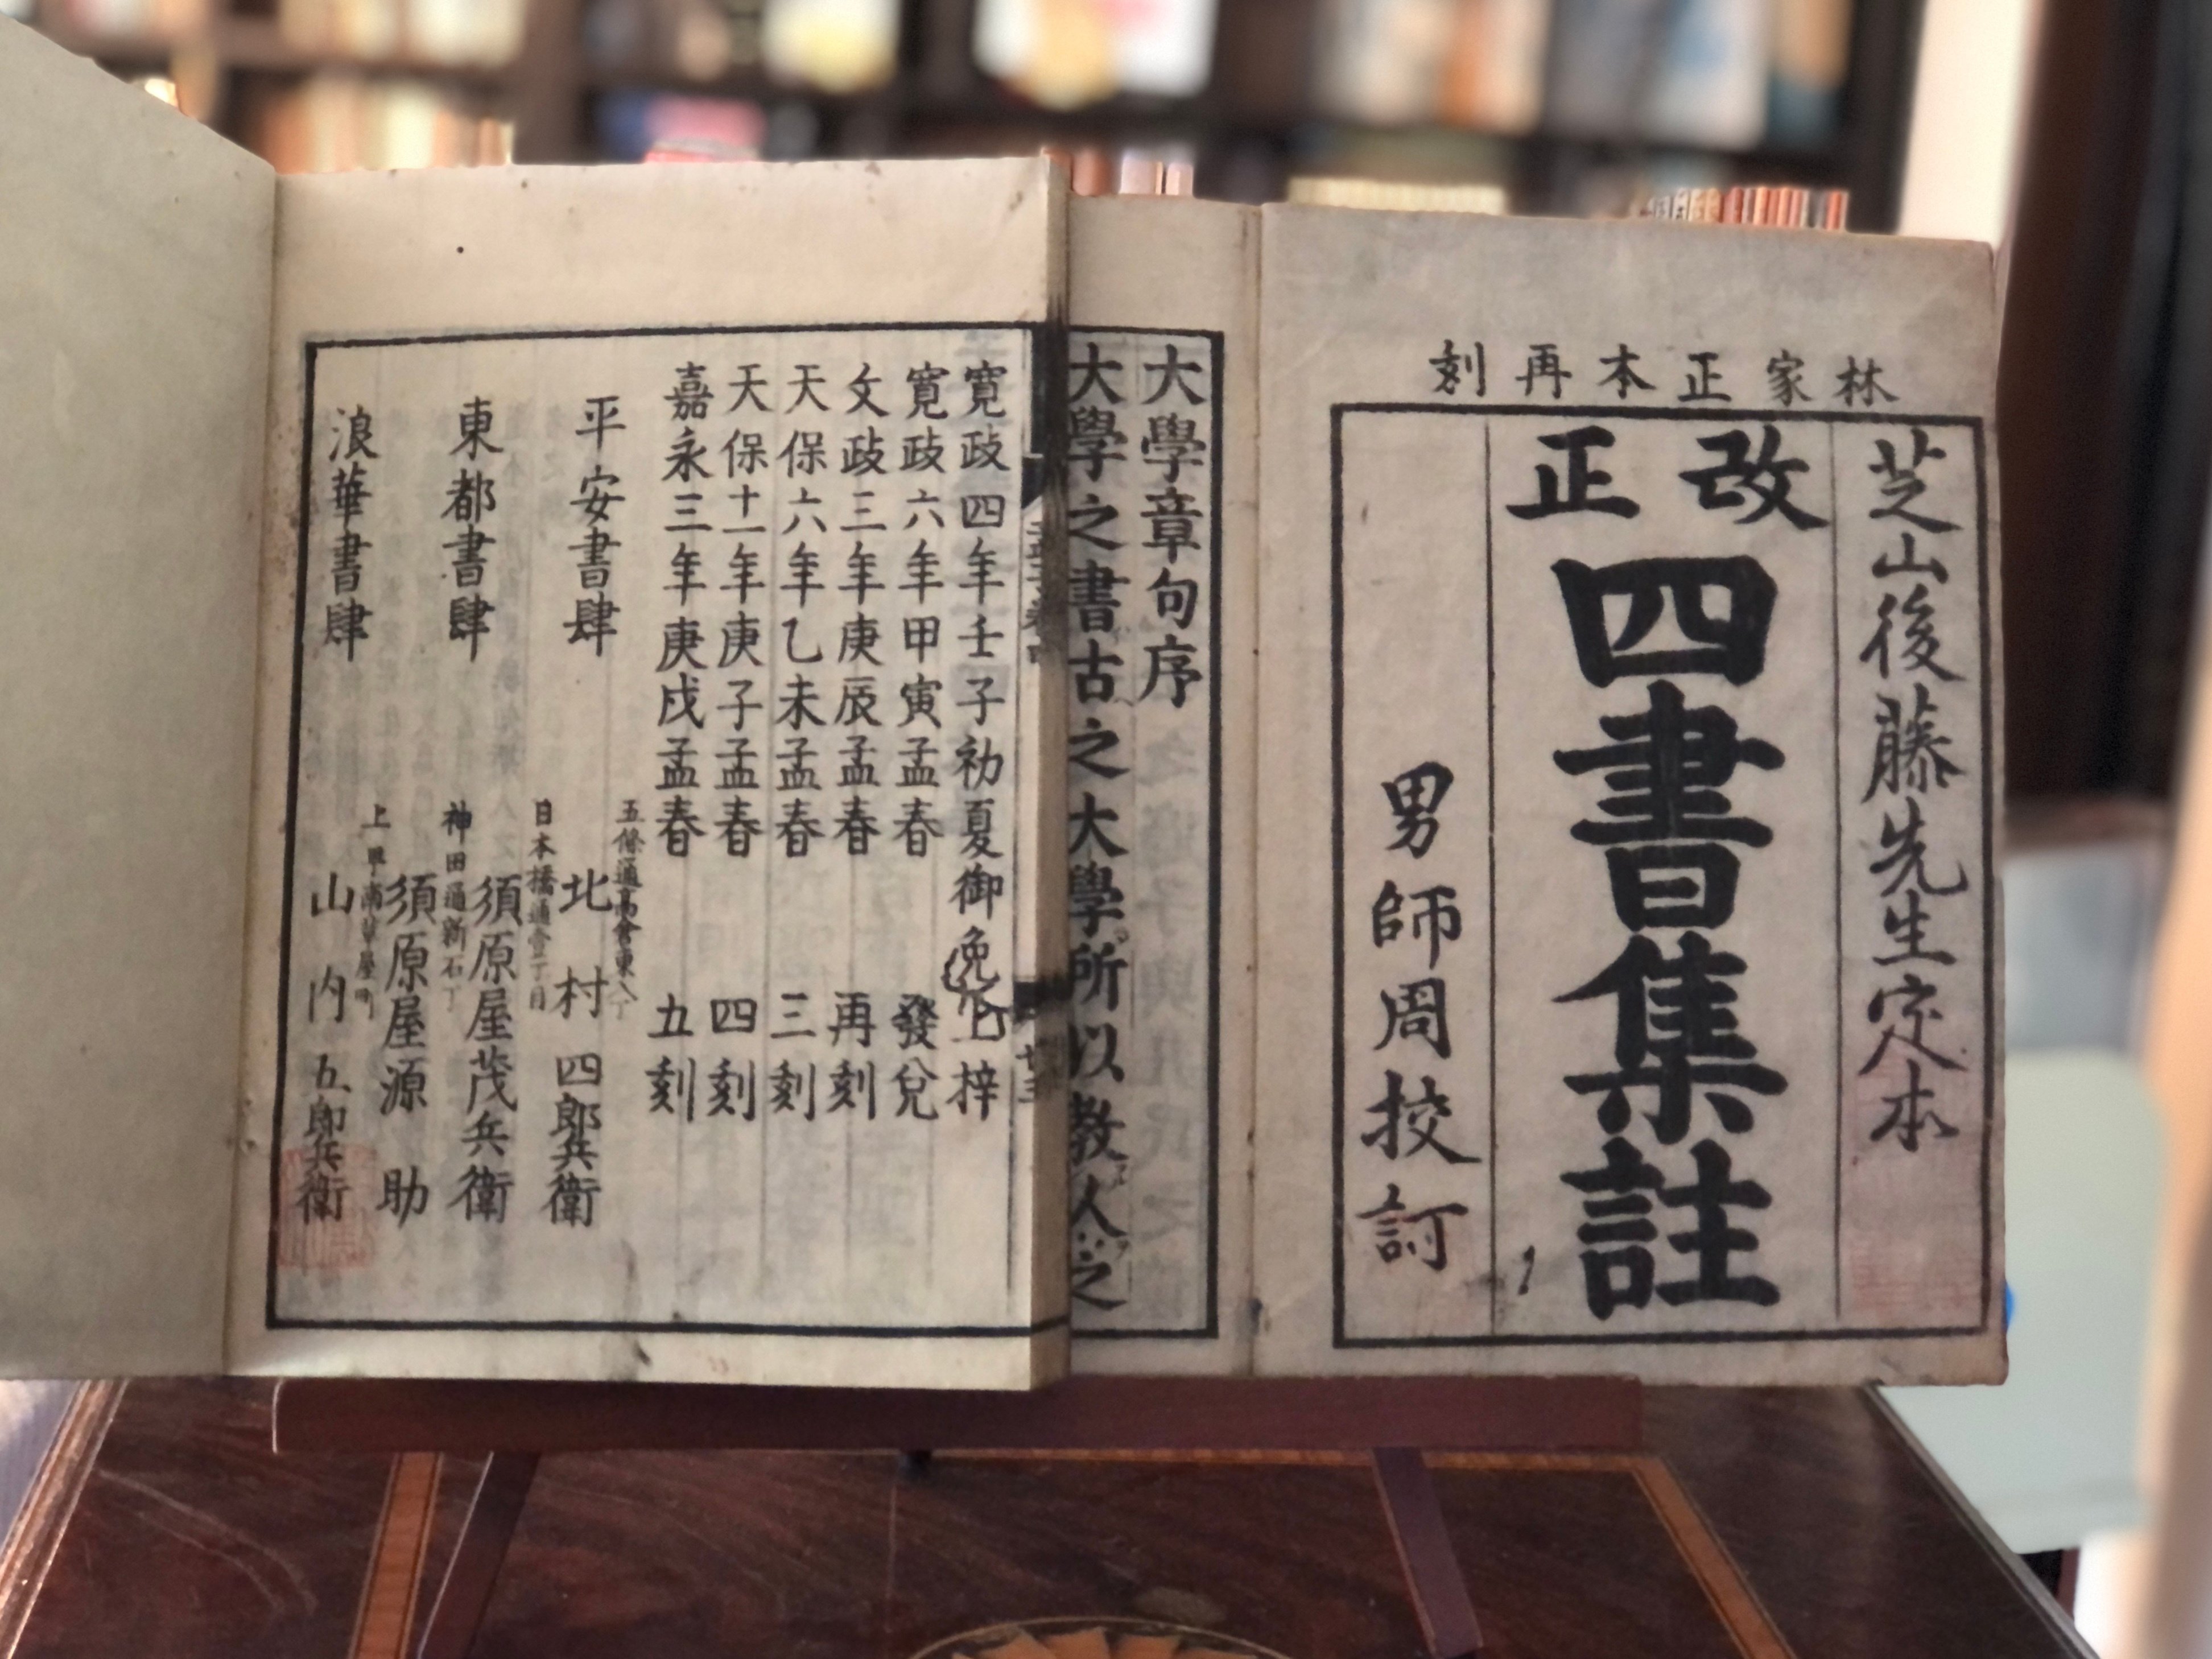 林家正本再刻
芝山後藤先生定本
改正
四書集註
男師周挍訂
大學章句序
大學之書古之大學所以教人之
寛政四年壬子初夏御免上梓
寛政六年甲寅孟春發兌
文政三年庚辰孟春再刻
天保六年乙未孟春三刻
天保十一年庚子孟春四刻
嘉永三年庚戌孟春五刻
平安書肆
五條通高倉東入
北村四郎兵衛
東都書肆
日本橋通壹丁目
須原屋茂兵衛
神田通新石丁
須原屋源助
浪華書肆
山内五郎兵衛